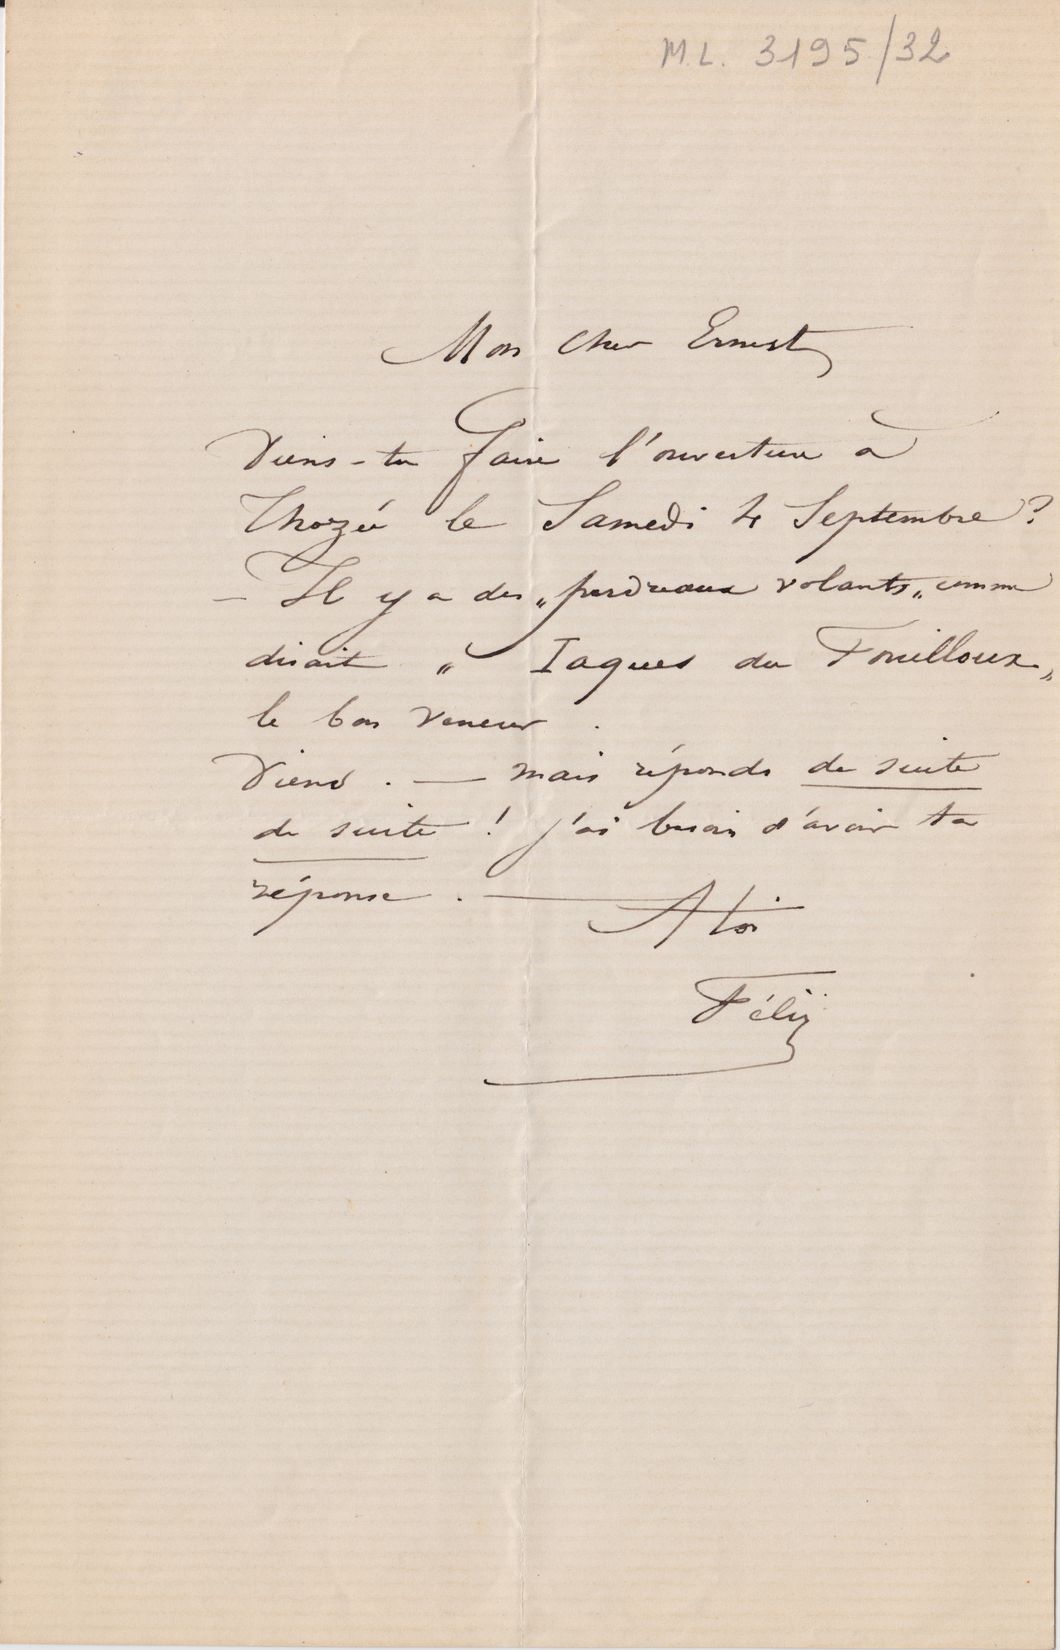 M.L. 3195/32
Mon cher Ernest
Viens-tu faire l'ouverture à
Thozée le Samedi 4 Septembre ?
– Il y a des „perdreaux volants„ comme
disait „ Iaques du Fouilloux„
le bon veneur .
Viens . — mais réponds de suite
de suite ! j'ai besoin d'avoir ta
réponse . —
A toi
Félix